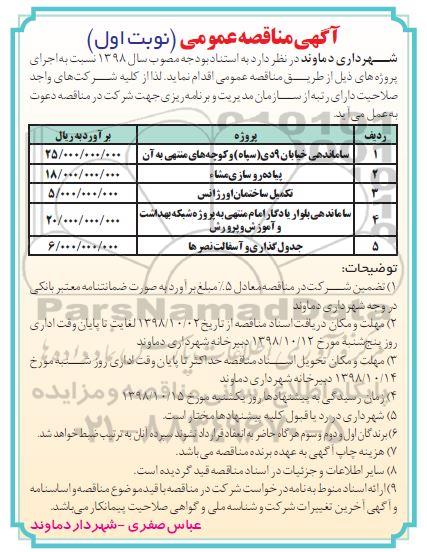 آگهی مناقصه عمومی (نوبت اول)
شهرداری دماوند در نظر دارد به استناد بودجه مصوب سال ۱۳۹۸ نسبت به اجرای
پروژه های ذیل از طریق مناقصه عمومی اقدام نماید. لذا از کلیه شرکت های واجد
صلاحیت دارای رتبه از سازمان مدیریت و برنامه ریزی جهت شرکت در مناقصه دعوت
به عمل می آید.
ردیف پروژه برآورد به ریال
۱ ساماندهی خیابان ۹ دی (سپاه) و کوچه های منتهی به آن ۲۵/۰۰۰/۰۰۰/۰۰۰
۲ پیاده رو سازی مشاء ۱۸/۰۰۰/۰۰۰/۰۰۰
۳ تکمیل ساختمان اورژانس ۵/۰۰۰/۰۰۰/۰۰۰
۴ ساماندهی بلوار یادگار امام منتهی به پروژه شبکه بهداشت
و آموزش و پرورش ۲۰/۰۰۰/۰۰۰/۰۰۰
۵ جدول گذاری و آسفالت نصرها ۶/۰۰۰/۰۰۰/۰۰۰
توضیحات:
۱) تضمین شرکت در مناقصه معادل ۵٪ مبلغ برآورد به صورت ضمانتنامه معتبر بانکی
در وجه شهرداری دماوند
۲) مهلت و مکان دریافت اسناد مناقصه از تاریخ ۱۳۹۸/۱۰/۰۲ لغایت تا پایان وقت اداری
روز پنج شنبه مورخ ۱۳۹۸/۱۰/۱۲ دبیرخانه شهرداری دماوند
۳) مهلت و مکان تحویل اسناد مناقصه حداکثر تا پایان وقت اداری روز شنبه مورخ
۱۳۹۸/۱۰/۱۴ دبیرخانه شهرداری دماوند
۴) زمان رسیدگی به پیشنهادها روز یکشنبه مورخ ۱۳۹۸/۱۰/۱۵
۵) شهرداری در رد یا قبول کلیه پیشنهادها مختار است.
۶) برندگان اول و دوم و سوم هرگاه حاضر به انعقاد قرارداد نشوند سپرده آنان به ترتیب ضبط خواهد شد.
۷) هزینه چاپ آگهی به عهده برنده مناقصه می باشد.
۸) سایر اطلاعات و جزئیات در اسناد مناقصه قید گردیده است.
۹) ارائه اسناد منوط به نامه درخواست شرکت در مناقصه با قید موضوع مناقصه و اساسنامه
و آگهی آخرین تغییرات شرکت و شناسه ملی و گواهی صلاحیت پیمانکار می باشد.
عباس صفری - شهردار دماوند